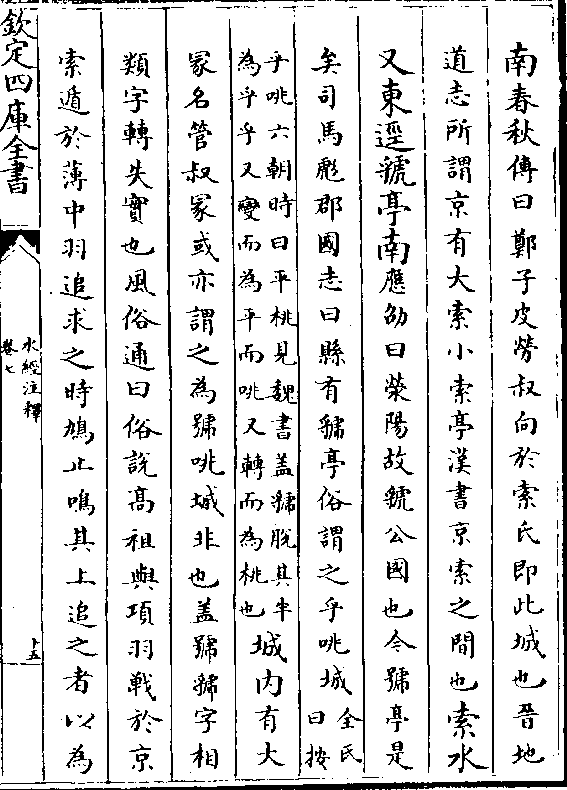 南春秋傳曰鄭子皮勞叔向於索氏即此城也晉地
道志所謂京有大索小索亭漢書京索之間也索水
又東逕虢亭南應劭曰滎陽故虢公國也今號亭是
矣司馬彪郡國志曰縣有虢亭俗謂之乎咷城全氏曰按
乎咷六朝時曰平桃見魏書盖虢脫其半
為乎乎又變而為平而咷又轉而為桃也城内有大
冢名管叔冢或亦謂之為號咷城非也盖號虢字相
類字轉失實也風俗通曰俗說髙祖與項羽戰於京
索遁於薄中羽追求之時鳩止鳴其上追之者以為
欽定四庫全書
水經注釋
卷七
十五